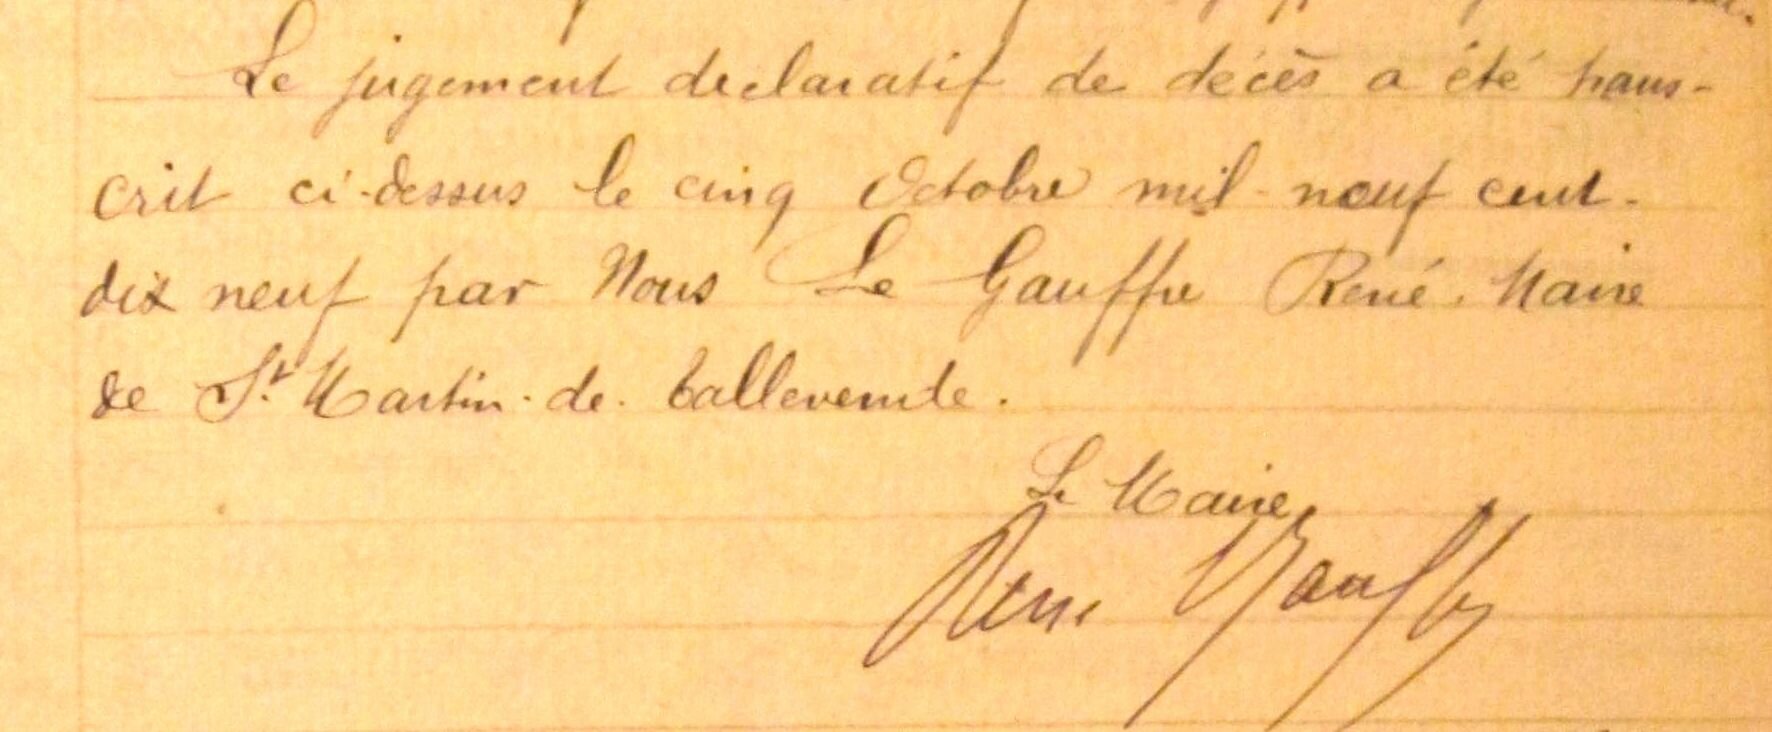 Le jugement declaratif de décès a été trans-
crit ci-dessus le cinq Octobre mil-neuf cent-
dix neuf par Nous Le Gauffre René. Maire
de St. Martin. de. Tallevende.
Le Maire
René Gauffre